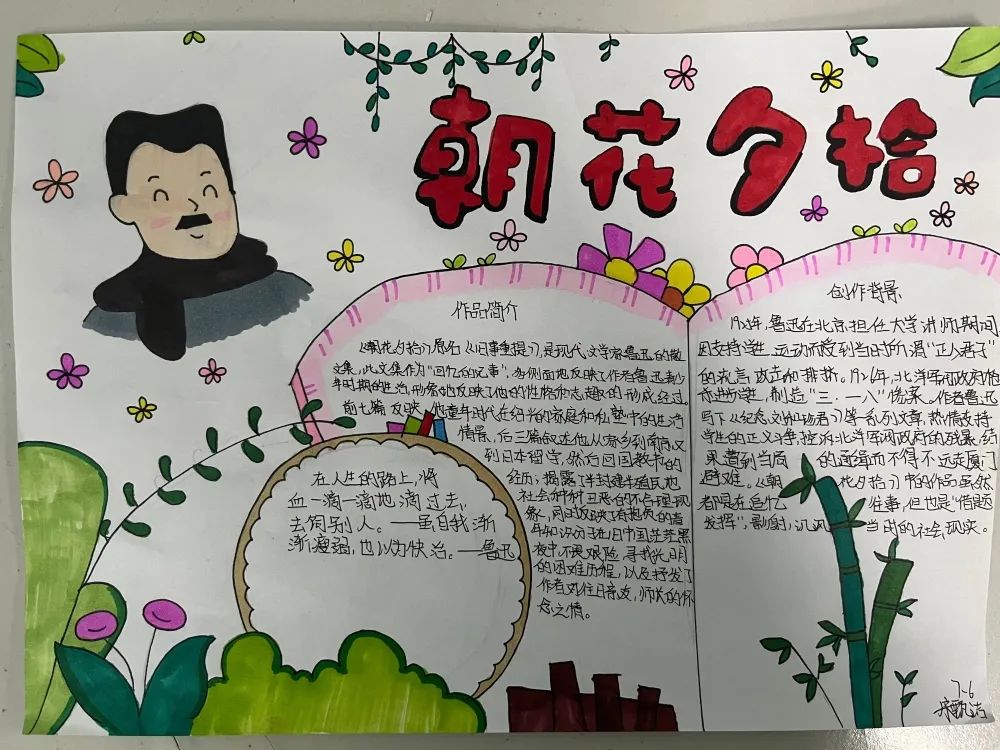 朝花夕拾
作品简介
《朝花夕拾》原名《旧事重提》,是现代文学家鲁迅的散
文集,此文集作为“回忆的记事”,多侧面地反映了作者鲁迅青少
年时期的生活,形象地反映了他的性格和志趣的形成经过。
前七篇反映他童年时代在绍兴的家庭和私塾中的生活
情景,后三篇叙述他从家乡到南京又
到日本留学,然后回国教书的
经历;揭露了半封建半殖民地
社会种种丑恶的不合理现
象,同时反映了有抱负的青
年知识分子在旧中国茫茫黑
夜中,不畏艰险,寻找光明
的困难历程,以及抒发了
作者对往日亲友,师长的怀
念之情。
在人生的路上,将
血一滴一滴地滴过去,
去饲别人。——虽自我渐
渐瘦弱,也以为快活。——鲁迅
创作背景
鲁迅在北京担任大学讲师期间
因支持学生运动而受到当日所谓“正人君子”
的流言攻击和排挤。1926年,北洋军阀政府枪
杀进步学生,制造“三·一八”惨案。作者鲁迅
写下《纪念刘和珍君》等一系列文章,热情支持
学生的正义斗争,控诉北洋军阀政府的残暴,结
果遭到当局的通缉而不得不远走厦门
避难。《朝花夕拾》中的作品虽然
都是在追忆往事,但也是“借题
发挥”,影射,讽刺当时的社会现实。
7-6